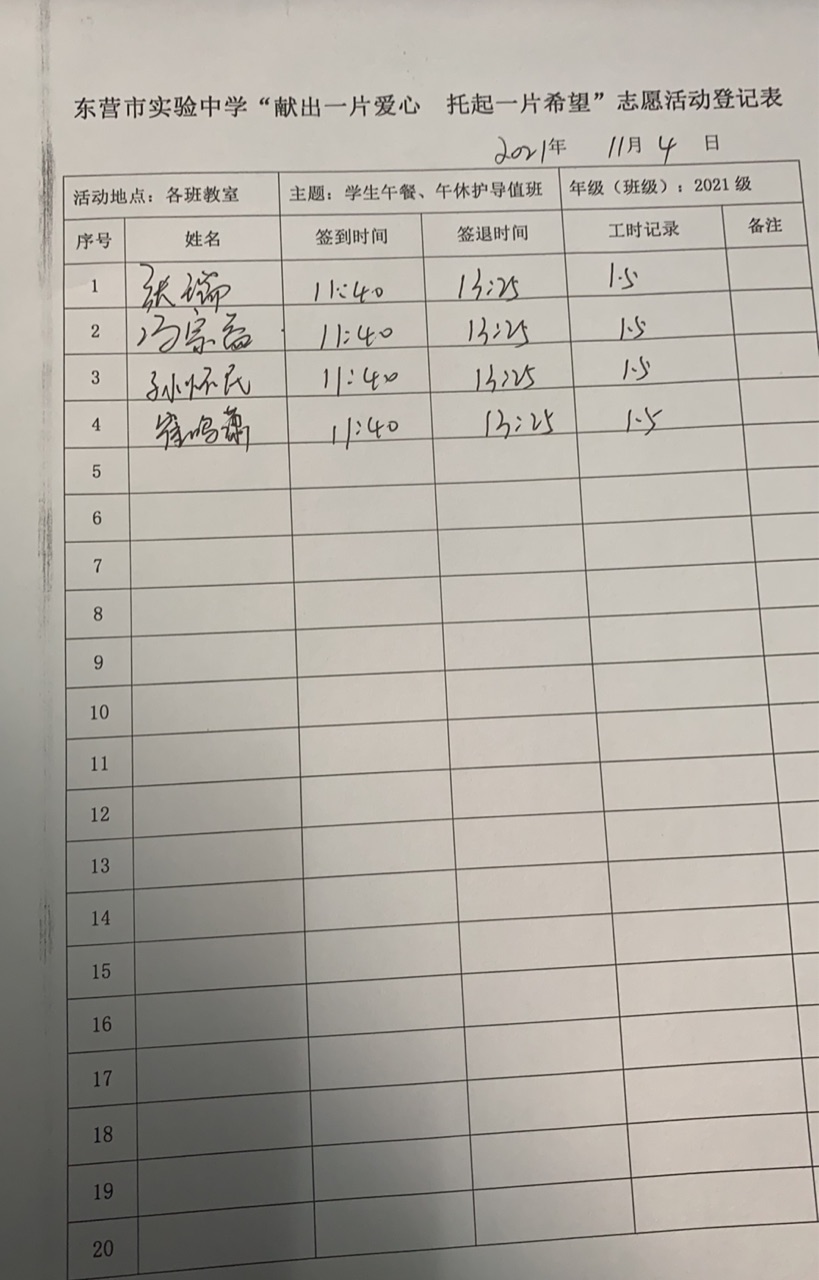 东营市实验中学“献出一片爱心 托起一片希望”志愿活动登记表
2021年 11月 4 日
活动地点：各班教室 主题：学生午餐、午休护导值班 年级（班级）：2021 级
序号 姓名 签到时间 签退时间 工时记录 备注
1 张瑞 11:40 13:25 1.5
2 冯宗益 11:40 13:25 1.5
3 孙怀民 11:40 13:25 1.5
4 崔鸣萧 11:40 13:25 1.5
5
6
7
8
9
10
11
12
13
14
15
16
17
18
19
20